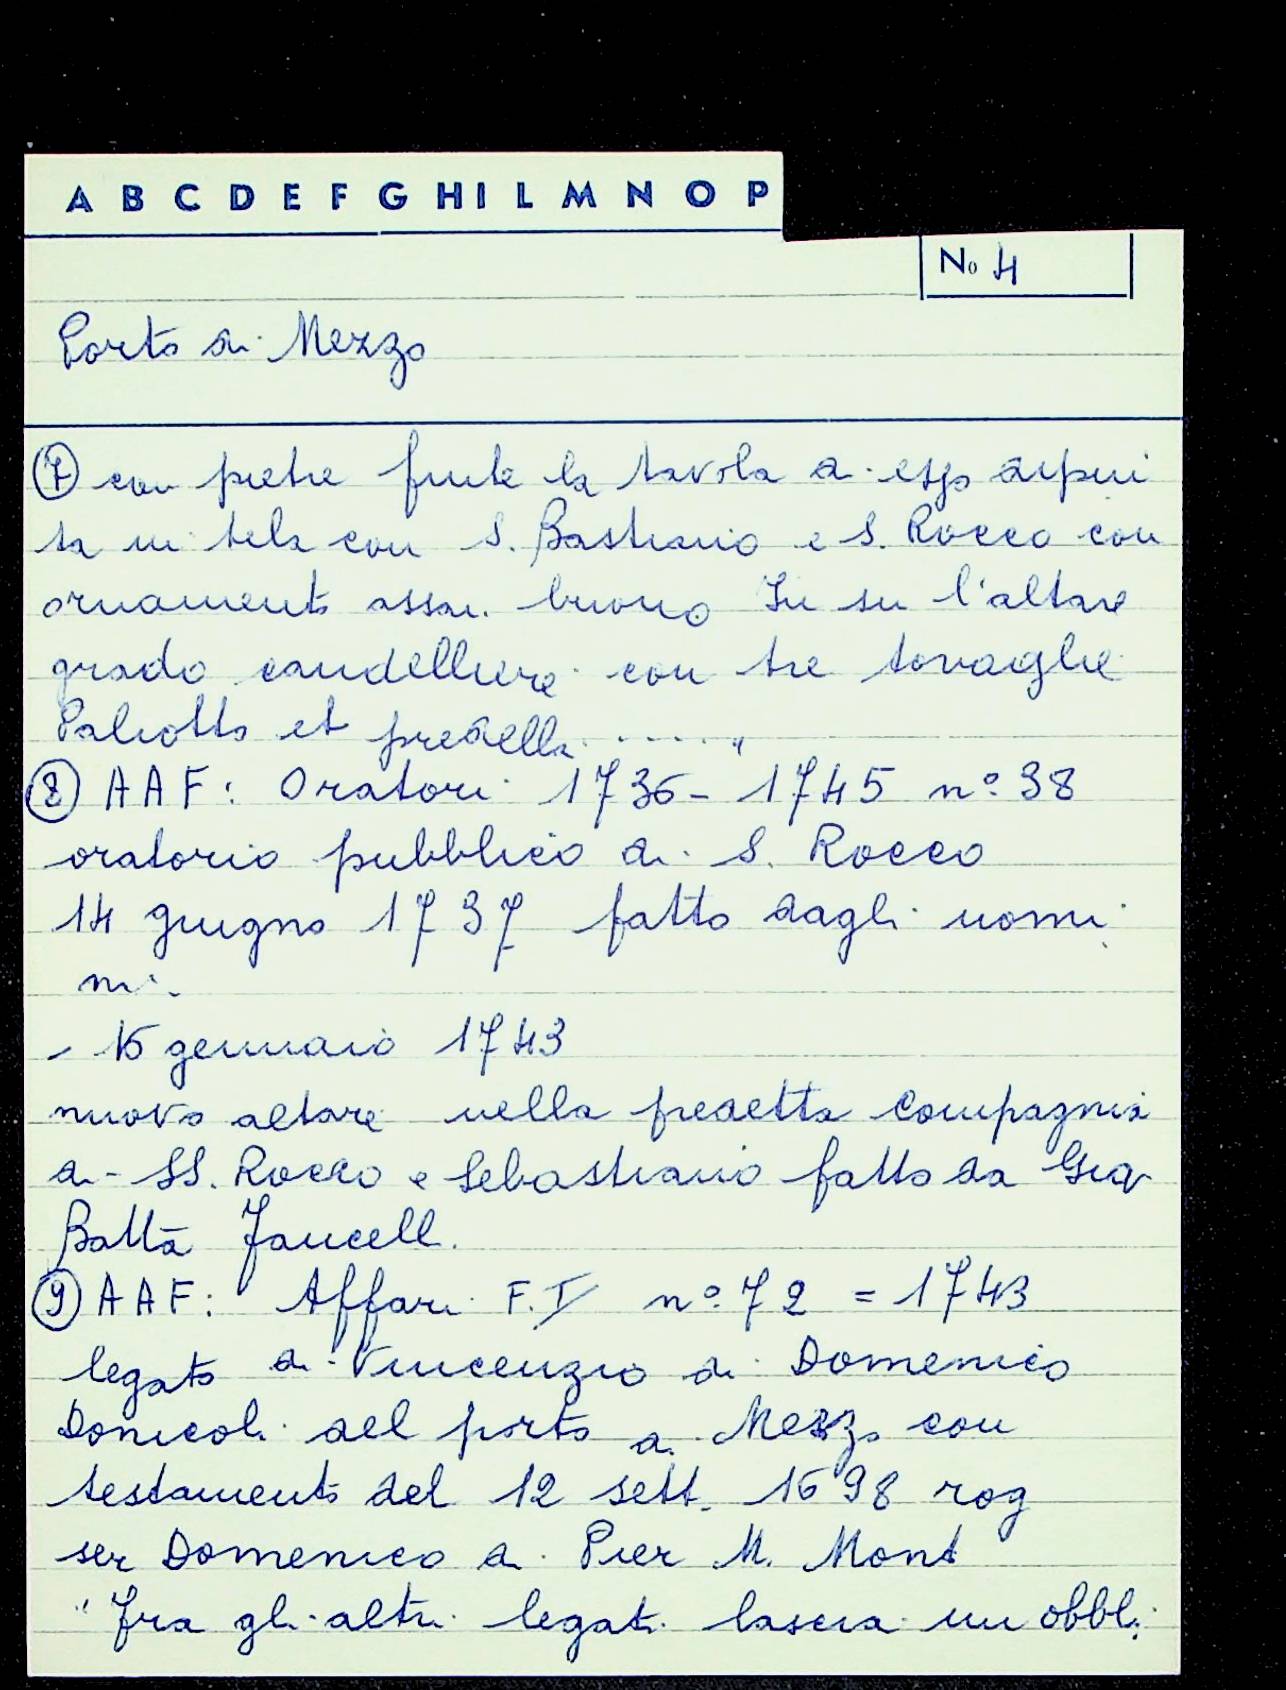 A B C D E F G H I L M N O P
No 4
Porto di Mezzo
7 con pietre finte la tavola di esso dipin
ta in tela con S. Bastiano e S. Rocco con
ornamento assai buono In su l'altare
grado candelliere con tre tovaglie
Paliotto et predella ...... "
8 AAF: Oratori 1736 - 1745 n° 38
oratorio pubblico di S. Rocco
14 giugno 1737 fatto dagli uomi
ni.
- 15 gennaio 1743
nuovo altare nella predetta compagnia
di SS. Rocco e Sebastiano fatto da Gio
Batta Fancelli.
9 AAF: Affari F.I n° 72 = 1743
legato di Vincenzio di Domenico
Donicoli del porto di Mezzo con
testamento del 12 sett. 1698 rog
ser Domenico di Pier M. Mont
"fra gli altri legati lascia un obbli